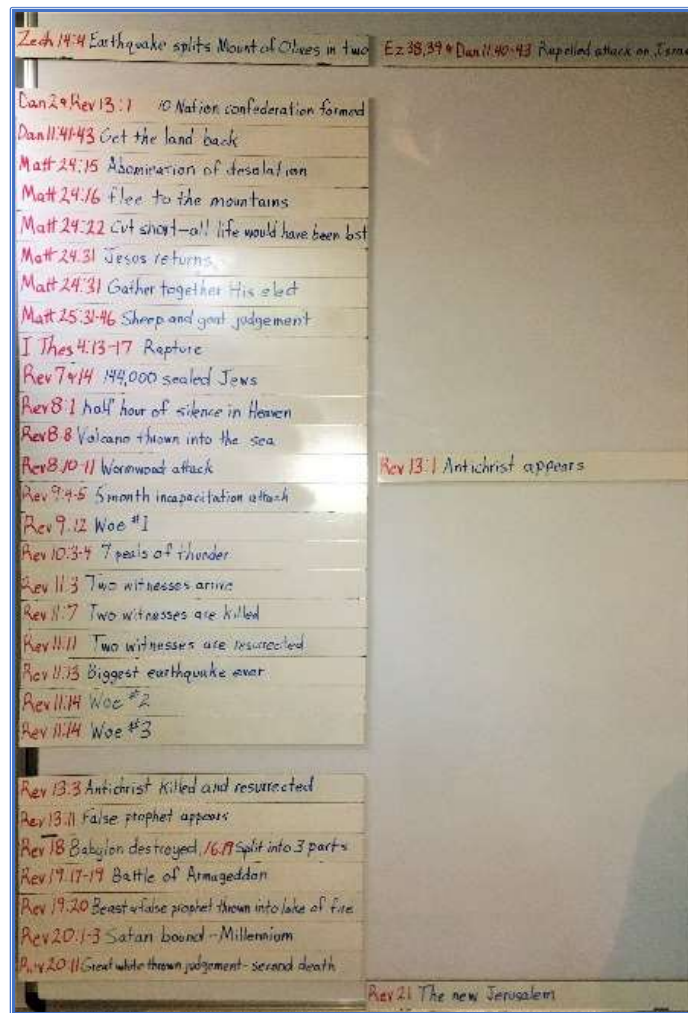 Zech 14:4 Earthquake splits Mount of Olives in two
Ez 38,39 & Dan 11:40-43 Rupelled attack on Israe
Dan 2 & Rev 13:1 10 Nation confederation formed
Dan 11:41-43 Get the land back
Matt 24:15 Abomination of desolation
Matt 24:16 flee to the mountains
Matt 24:22 Cut short-all life would have been lost
Matt 24:31 Jesus returns
Matt 24:31 Gather together His elect
Matt 25:31-46 Sheep and goat judgement
I Thes 4:13-17 Rapture
Rev 7 & 14 144,000 sealed Jews
Rev 8:1 half hour of silence in Heaven
Rev 8:8 Volcano thrown into the sea
Rev 8:10-11 Wormwood attack
Rev 13:1 Antichrist appears
Rev 9:4-5 5 month incapacitation attack
Rev 9:12 Woe #1
Rev 10:3-4 7 peals of thunder
Rev 11:3 Two witnesses arrive
Rev 11:7 Two witnesses are killed
Rev 11:11 Two witnesses are resurrected
Rev 11:13 Biggest earthquake ever
Rev 11:14 Woe #2
Rev 11:14 Woe #3
Rev 13:3 Antichrist killed and resurrected
Rev 13:11 False prophet appears
Rev 18 Babylon destroyed, 16:19 Split into 3 parts
Rev 19:17-19 Battle of Armageddon
Rev 19:20 Beast & false prophet thrown into lake of fire
Rev 20:1-3 Satan bound - Millennium
Rev 20:11 Great white thrown judgement - second death
Rev 21 The new Jerusalem